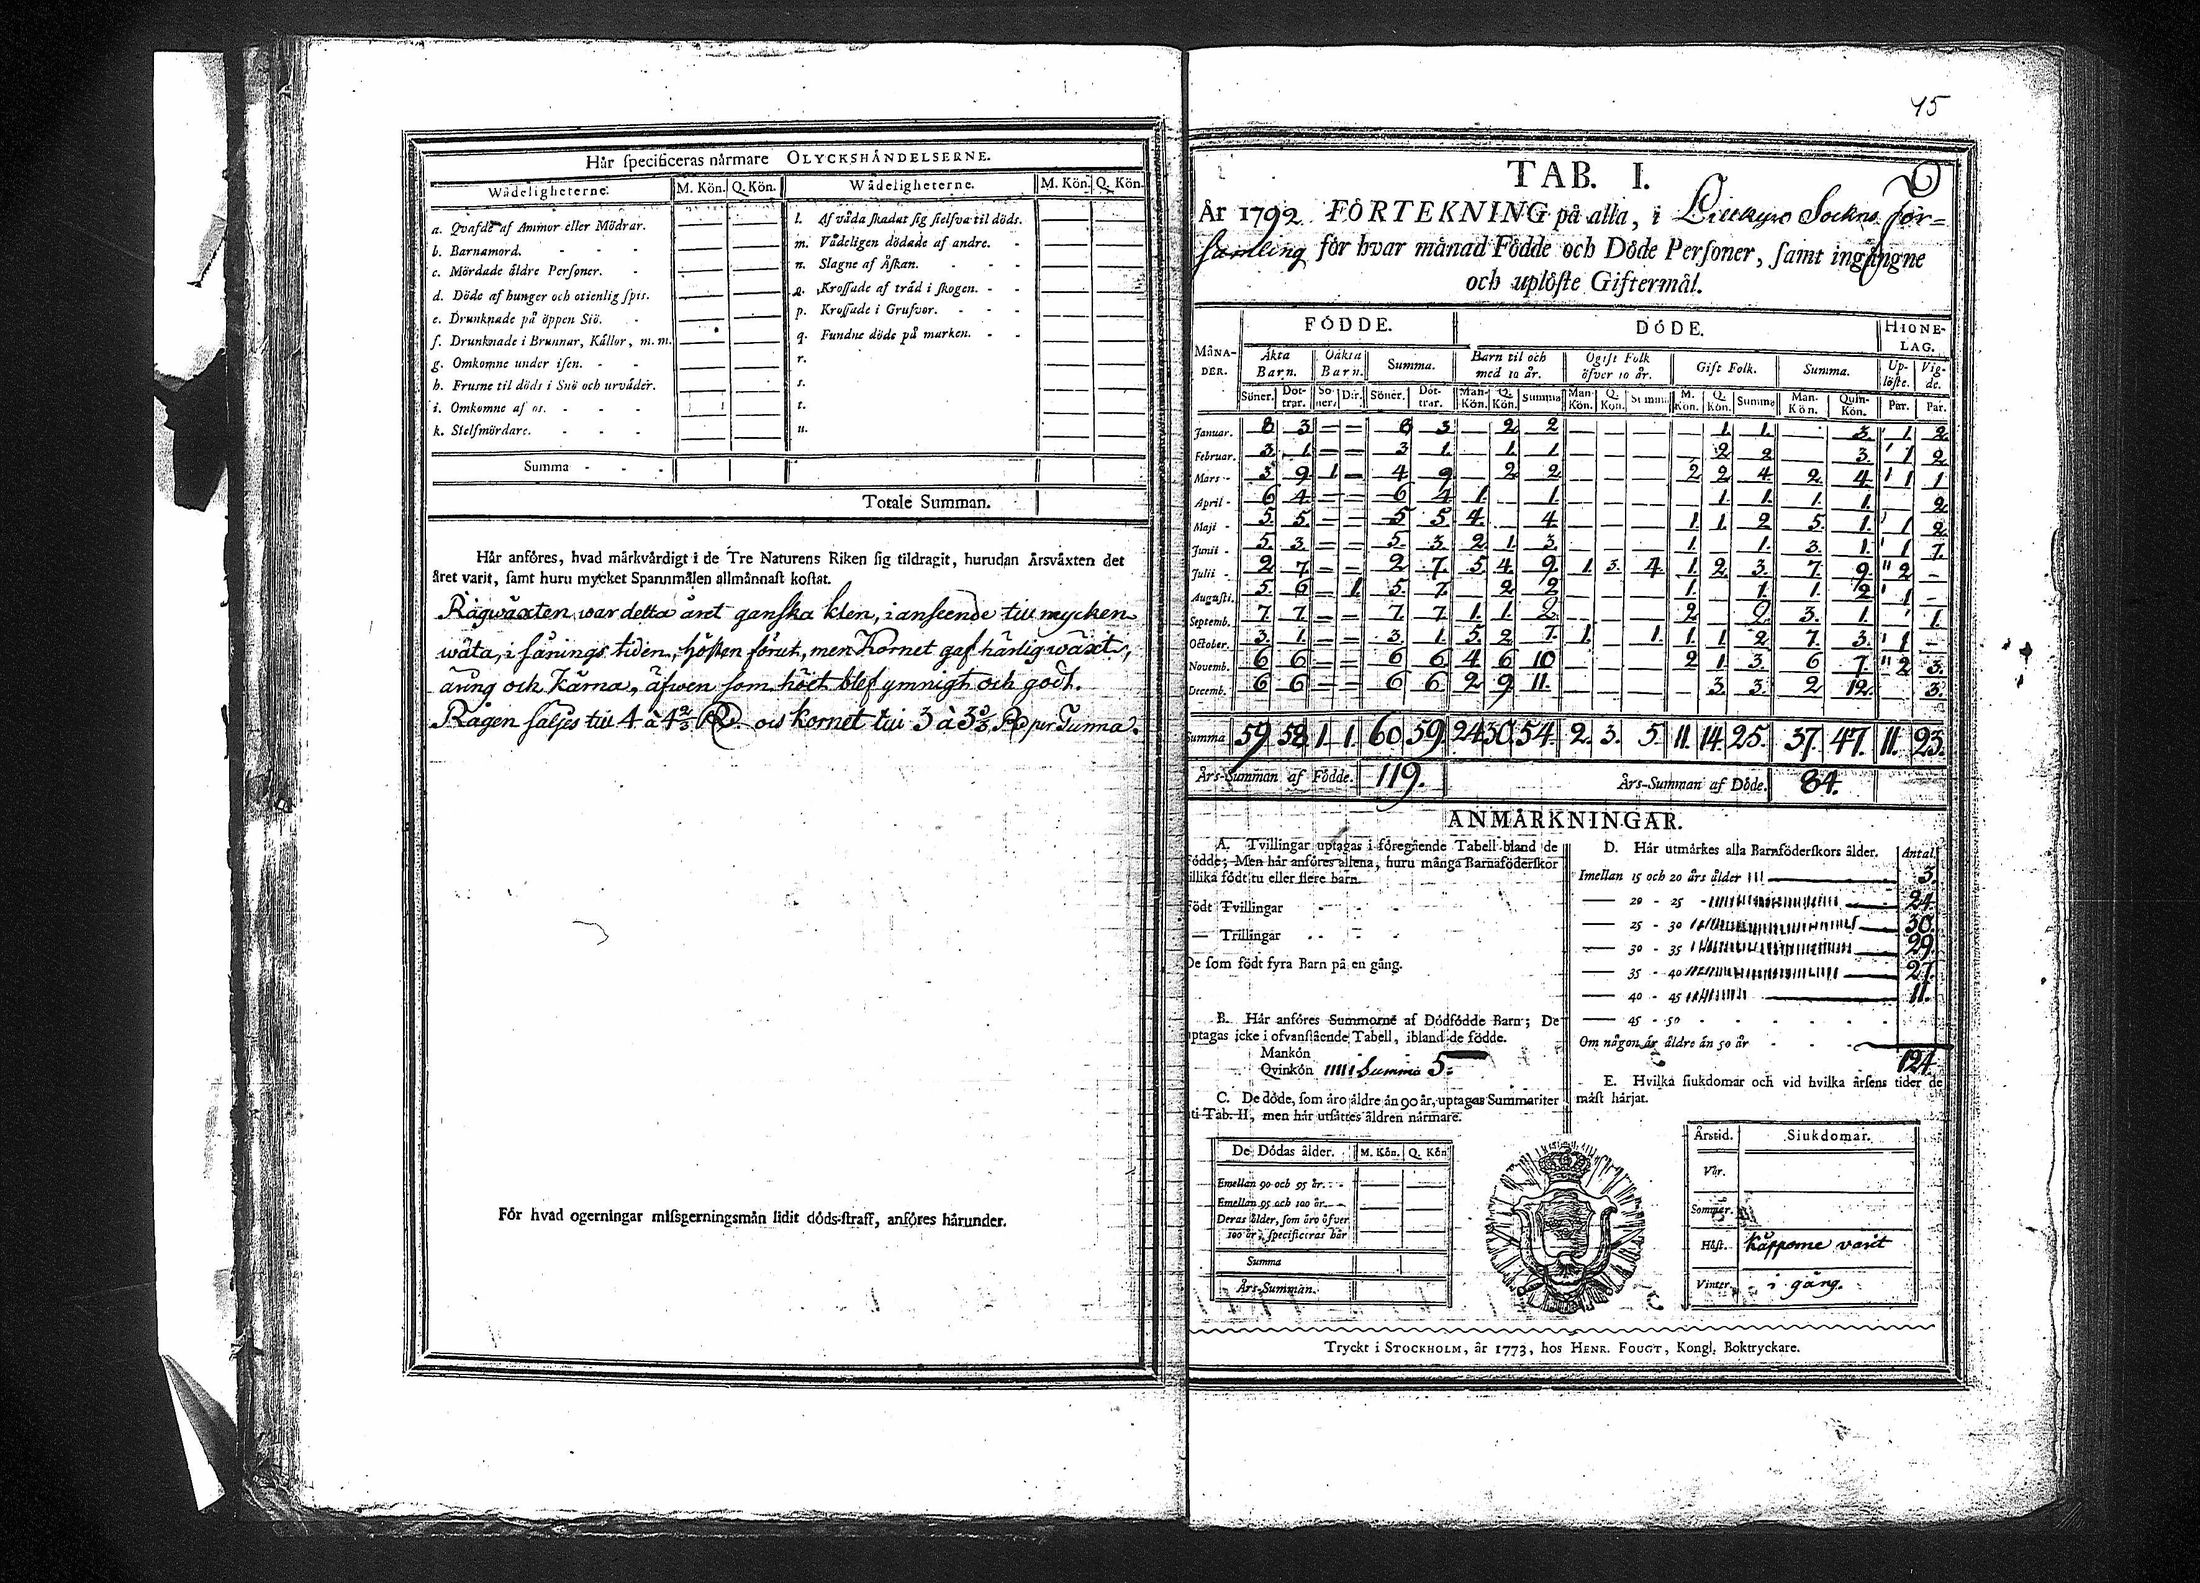 Här specificeras närmare OLYCKSHÄNDELSERNE.
Wådeligheterne. M. Kön. Q. Kön. Wådeligheterne. M. Kön. Q. Kön.
a. Qvafde af Ammor eller Mödrar. l. Af våda skadat sig sielfva til döds.
b. Barnamord. m. Vådeligen dödade af andre.
c. Mördade äldre Personer. n. Slagne af Åskan.
d. Döde af hunger och otienlig spis. o. Krossade af träd i skogen.
e. Drunknade på öppen Siö. p. Krossade i Grufvor.
f. Drunknade i Brunnar, Källor, m. m. q. Fundne döde på marken.
g. Omkomne under isen. r.
h. Frusne til döds i Snö och urväder. s.
i. Omkomne af os. t.
k. Sielfmördare. u.
Summa
Totale Summan.
Här anföres, hvad märkvärdigt i de Tre Naturens Riken sig tildragit, hurudan Årsväxten det
året varit, samt huru mycket Spannmålen allmännast kostat.
Rågwäxten war detta året ganska klen, i anseende till mycken
wäta, i sånings tiden, hösten förut, men Kornet gaf härlig wäxt,
äring och Kärna, äfwen som höet blef ymnigt och godt.
Rågen säljes till 4 à 4 2/3 Rd. och kornet till 3 à 3 2/3 Rd per Tunna.
För hvad ogerningar missgerningsmän lidit döds-straff, anföres härunder.
45
TAB. I.
År 1792 FÖRTEKNING på alla, i Lillkyro Sockns För=
samling för hvar månad Födde och Döde Personer, samt ingångne
och uplöste Giftermål.
FÖDDE. DÖDE. HIONE-LAG.
MÅNA-DER. Äkta Barn. Oäkta Barn. Summa. Barn til och med 10 år. Ogift Folk öfver 10 år. Gift Folk. Summa. Up-löste. Vig-de.
Söner. Döt-trar. Sö-ner. Dr. Söner. Döt-trar. Man-Kön. Q. Kön. Summa Man-Kön. Q. Kön. Summa M. Kön. Q. Kön. Summa Man-Kön. Quin-Kön. Par. Par.
Januar. 8 3 = = 8 3 — 2 2 — — — — 1. 1. — 3. 1 2
Februar. 3 1 = = 3 1. — 1. 1 — — — — 2 2 — 3. 1 2
Mars 3 9 1 — 4 9 — 2 2 — — — 2 2 4 2 4 1 1
April 6 4 = = 6 4 1. — 1. — — — — 1. 1. 1. 1. — 2
Maji 5. 5 = = 5 5 4. — 4 — — — 1. 1. 2 5. 1. 1 2
Junii 5. 3 = = 5. 3 2 1. 3 — — — 1. — 1. 3. 1. 1 7.
Julii 2 7 = = 2 7. 5 4 9 1. 3. 4. 1 2 3. 7. 9. 2 —
Augusti. 5 6 = 1. 5. 7 — 2 2 — — — 1. — 1. 1. 2 1 —
Septemb. 7. 7. = = 7. 7 1. 1. 2 — — — 2 — 2. 3. 1. 1.
October. 3 1. = = 3 1. 5. 2 7. 1. — 1. 1 1 2 7 3. 1 —
Novemb. 6 6 = = 6 6 4 6 10 — — — 2 1 3. 6 7 2 3.
Decemb. 6 6 = = 6 6 2 9 11. — — — — 3. 3. 2 12. — 3.
Summa 59 58 1. 1. 60 59. 24 30 54. 2. 3. 5. 11. 14. 25. 37. 47. 11. 23.
Års-Summan af Födde. 119. Års-Summan af Döde. 84.
ANMÄRKNINGAR.
A. Tvillingar uptagas i föregående Tabell bland de
Födde; Men här anföres allena, huru många Barnaföderskor
tillika födt tu eller flere barn.
Födt Tvillingar
— Trillingar
De som födt fyra Barn på en gång.
B. Här anföres Summorne af Dödfödde Barn; De
uptagas icke i ofvanstående Tabell, ibland de födde.
Mankön
Qvinkön Summa 5.
C. De döde, som äro äldre än 90 år, uptagas Summariter
uti Tab. II, men här utsättes åldren närmare.
De Dödas ålder. M. Kön. Q. Kön
Emellan 90 och 95 år.
Emellan 95 och 100 år.
Deras ålder, som äro öfver
100 år, specificeras här
Summa
Års-Summan.
D. Här utmärkes alla Barnföderskors ålder. Antal
Imellan 15 och 20 års ålder 3.
— 20 - 25 24.
— 25 - 30 30.
— 30 - 35 29.
— 35 - 40 27.
— 40 - 45 11.
— 45 - 50
Om någon är äldre än 50 år
124
E. Hvilka siukdomar och vid hvilka årsens tider de
mäst härjat.
Årstid. Siukdomar.
Vår.
Sommar.
Höst. Kåpporne varit
Vinter. i gång.
Tryckt i STOCKHOLM, år 1773, hos HENR. FOUGT, Kongl. Boktryckare.